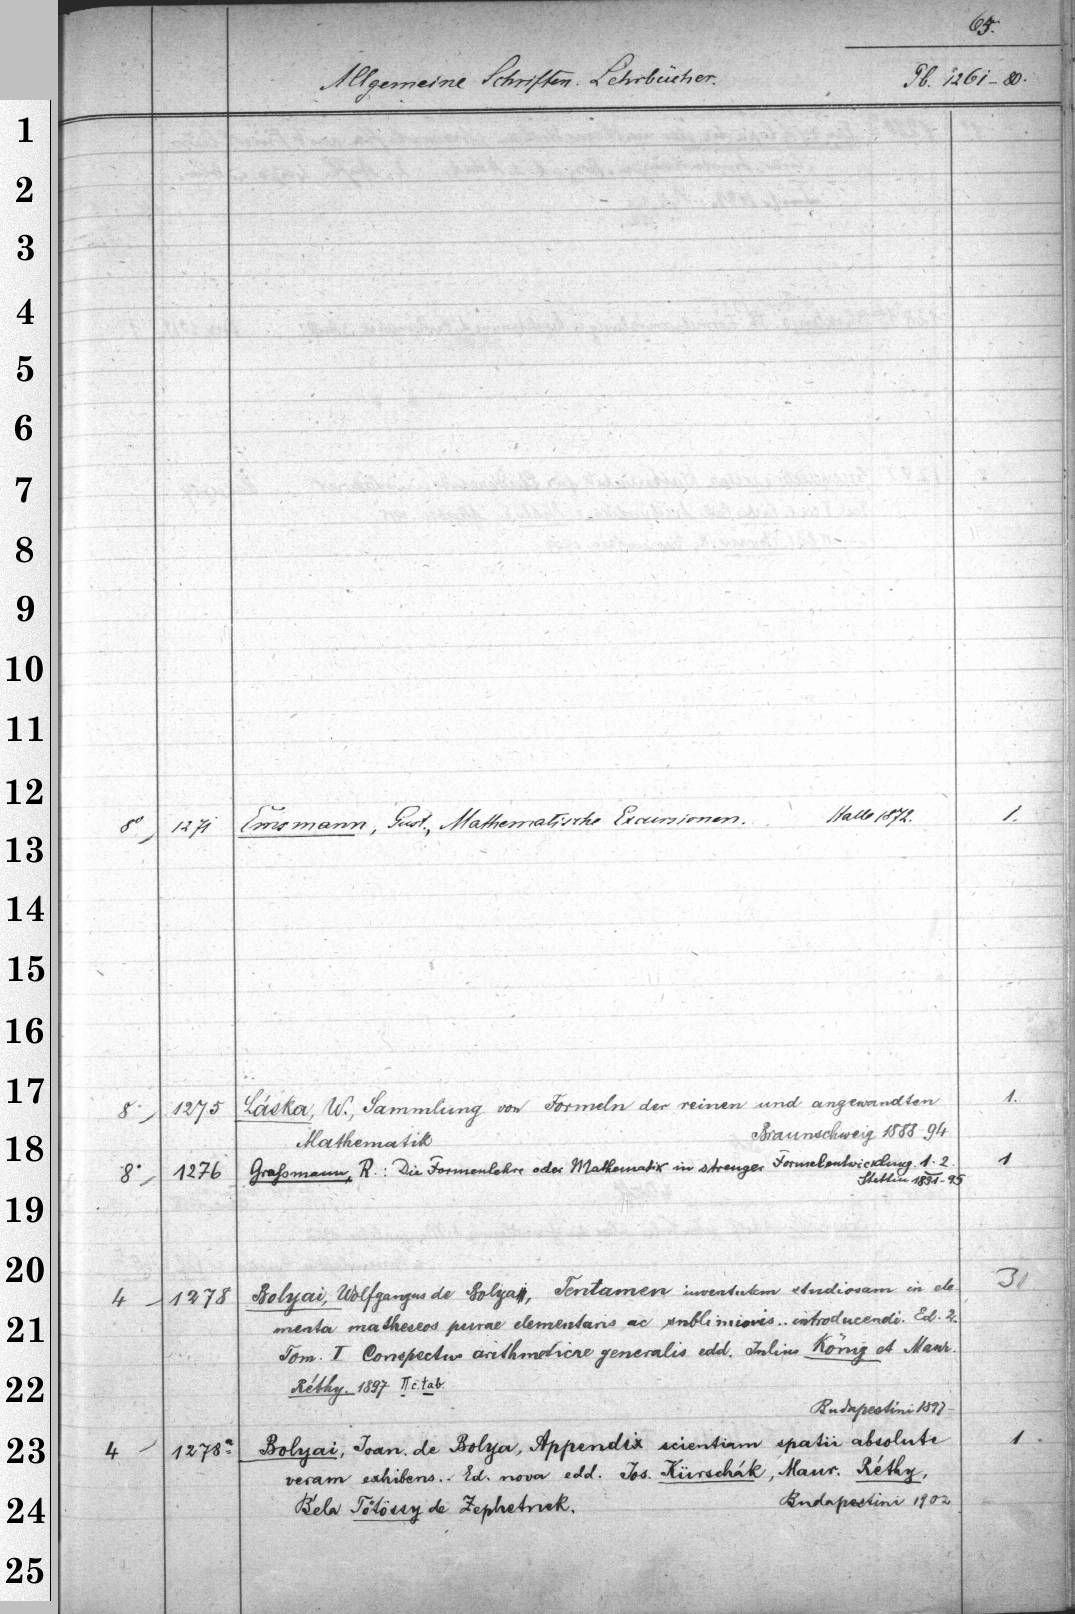 65.
Allgemeine Schriften. Lehrbücher. Pb. 1261-80.
1
2
3
4
5
6
7
8
9
10
11
12
8° 1271 Emsmann, Gust., Mathematische Excursionen. Halle 1872. 1.
13
14
15
16
17
8° 1275 Láska, W., Sammlung von Formeln der reinen und angewandten 1.
Mathematik Braunschweig 1888-94
18
8° 1276 Graßmann, R.: Die Formenlehre oder Mathematik in strenger Formelentwicklung 1-2. 1
Stettin 1891-95
19
20
4 1278 Bolyai, Wolfgangus de Bolya, Tentamen iuventutem studiosam in ele
menta matheseos purae elementaris ac sublimioris.. introducendi. Ed. 2.
21
Tom. I Conspectus arithmeticae generalis edd. Iulius König et Maur.
Réthy. 1897 II c. tab.
22
Budapestini 1897-
23
4 1278a Bolyai, Ioan. de Bolya, Appendix scientiam spatii absolute 1.
veram exhibens.. Ed. nova edd. Ios. Kürschák, Maur. Réthy,
24
Béla Tötössy de Zepethnek. Budapestini 1902
25